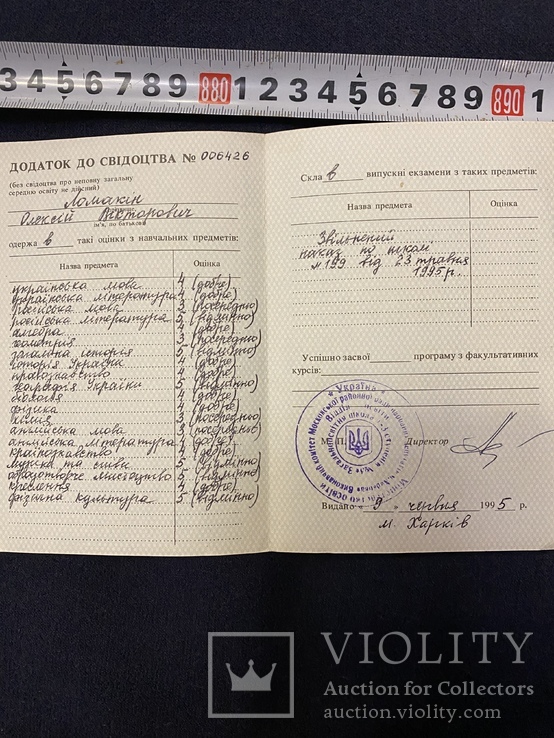 3 4 5 6 7 8 9 880 1 2 3 4 5 6 7 8 9 890 1
ДОДАТОК ДО СВІДОЦТВА № 006426
(без свідоцтва про неповну загальну
середню освіту не дійсний)
Ломакін
Олексій Вікторович
ім'я, по батькові
одержа в такі оцінки з навчальних предметів:
Назва предмета Оцінка
українська мова 4 (добре)
українська література 4 (добре)
російська мова 3 (посередньо)
російська література 5 (відмінно)
алгебра 4 (добре)
геометрія 3 (посередньо)
загальна історія 5 (відмінно)
історія України 4 (добре)
правознавство 4 (добре)
географія України 5 (відмінно)
біологія 4 (добре)
фізика 4 (добре)
хімія 3 (посередньо)
англійська мова 3 (посередньо)
англійська література 4 (добре)
країнознавство 4 (добре)
музика та співи 5 (відмінно)
образотворче мистецтво 5 (відмінно)
креслення 4 (добре)
фізична культура 5 (відмінно)
Скла в випускні екзамени з таких предметів:
Назва предмета Оцінка
Звільнений
наказ по школі
№ 199 від 23 травня
1995 р.
Успішно засвої програму з факультативних
курсів:
Україна
М. П. Директор
Видано „ 9 " червня 1995 р.
м. Харків
VIOLITY
Auction for Collectors
auction.violity.com